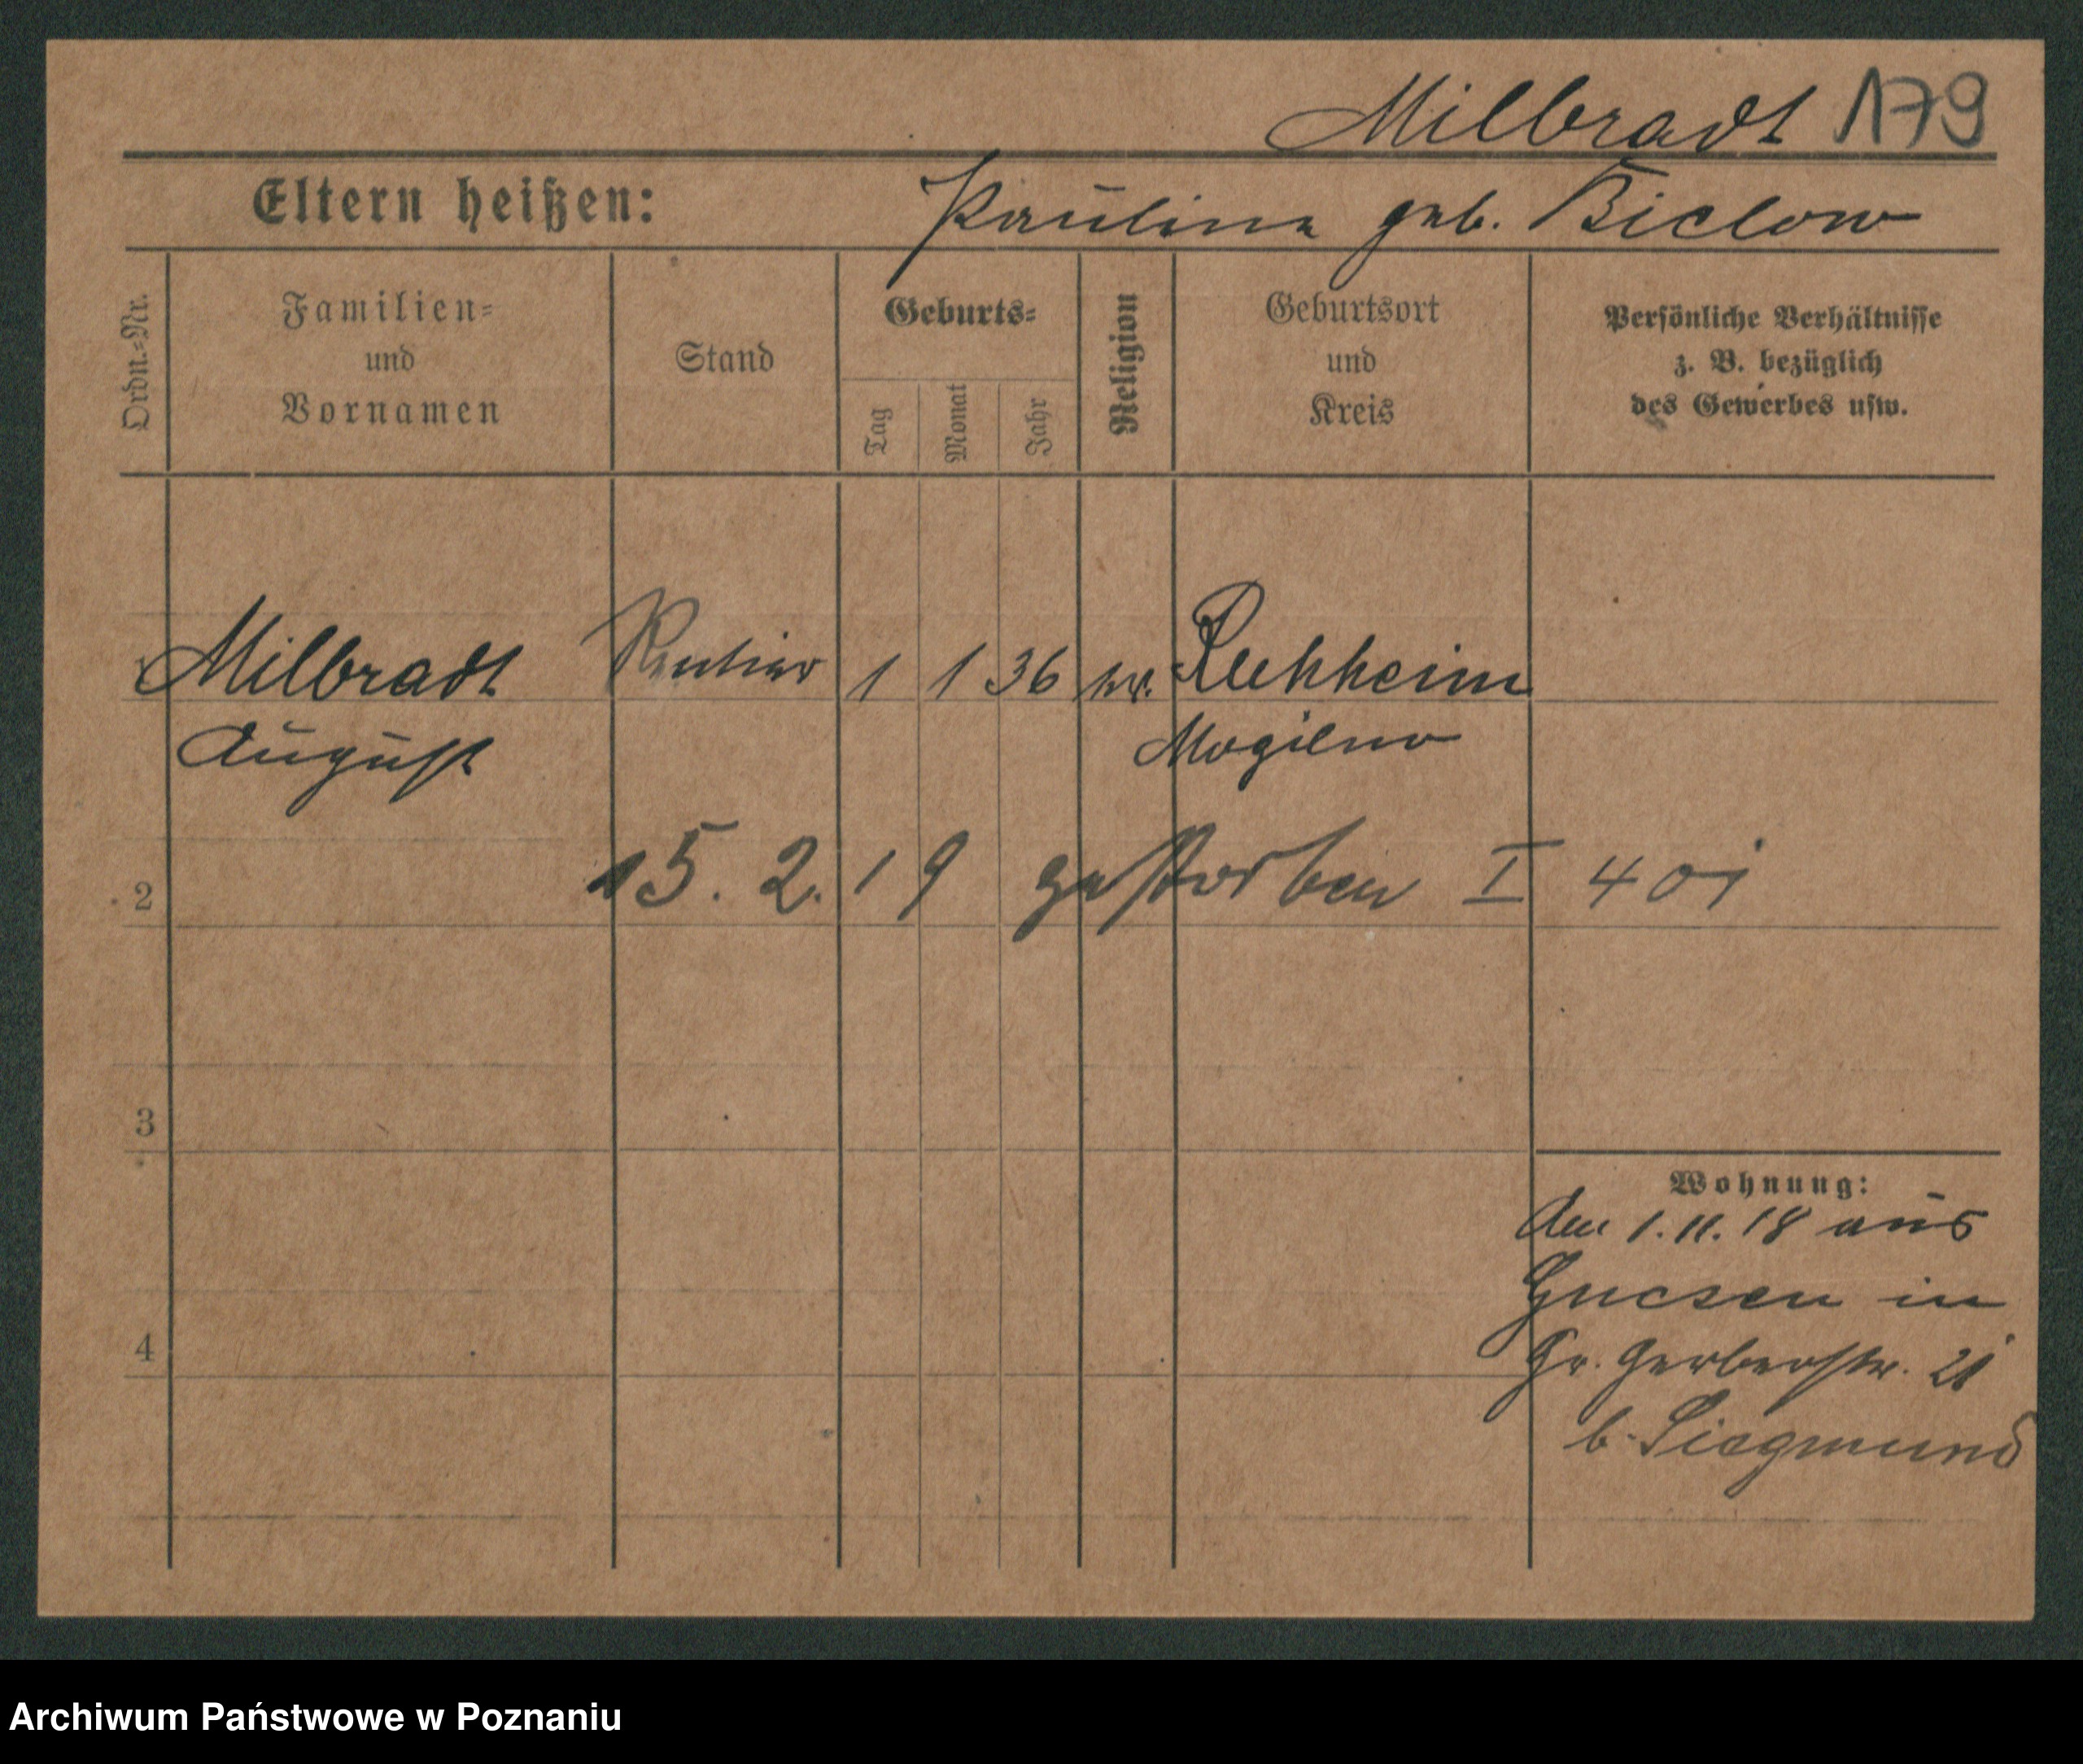 Milbradt 179
Eltern heißen: Pauline geb. Bielow
Ordn.=Nr.
Familien=
und
Vornamen
Stand
Geburts=
Tag
Monat
Jahr
Religion
Geburtsort
und
Kreis
Persönliche Verhältnisse
z. B. bezüglich
des Gewerbes usw.
Milbradt Rentier 1 1 36 ev.
August Mogilno
2 15. 2. 19 gestorben I 401
3
Wohnung:
Am 1. 11. 18 aus
Gnesen in
4 Gr. Gerberstr. 21
b. Siegmund
Archiwum Państwowe w Poznaniu